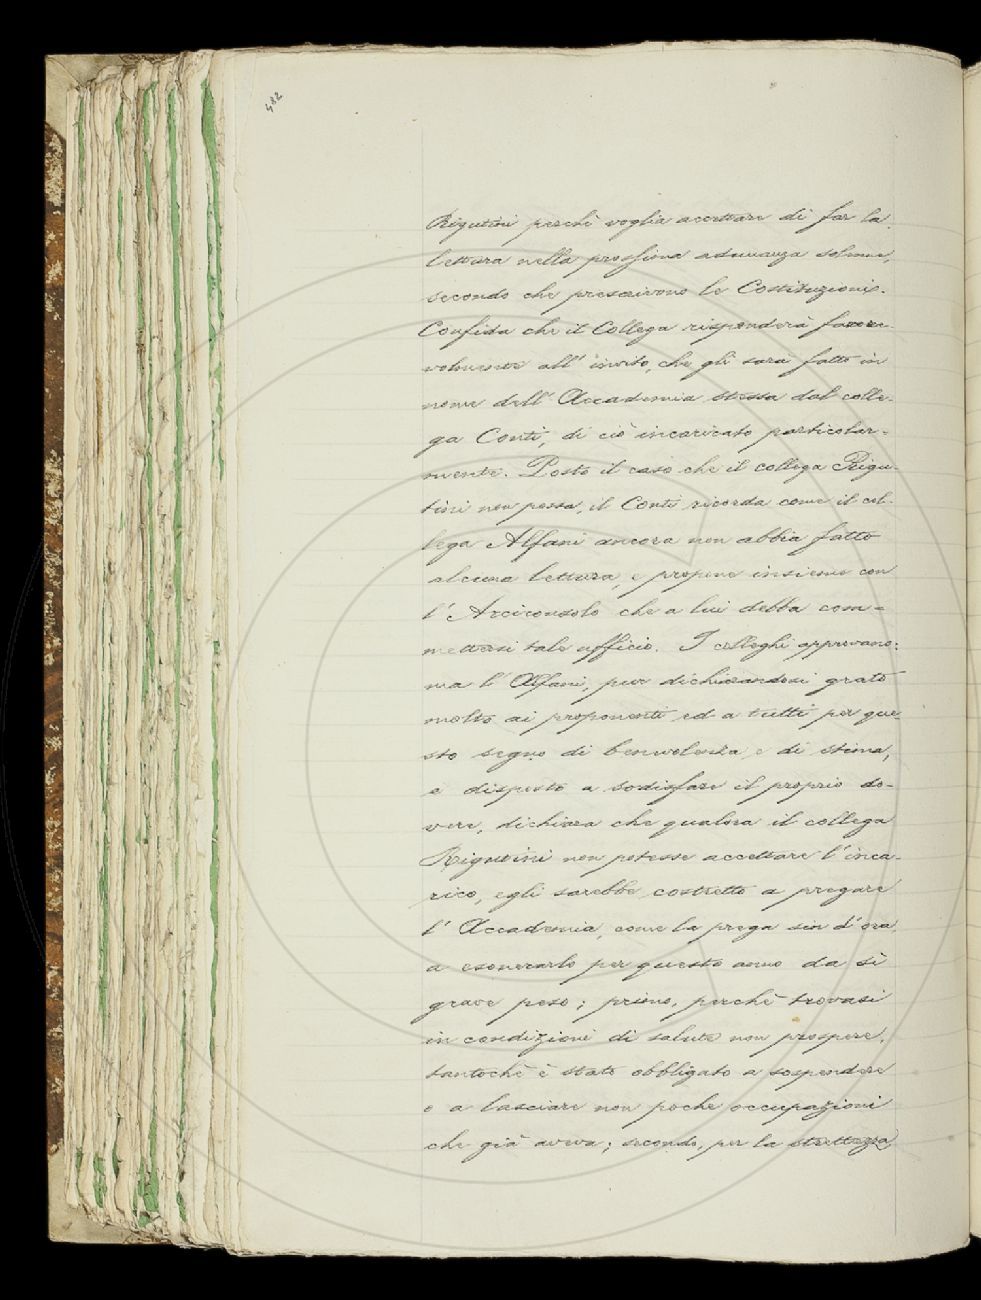 482
Rigutini perchè voglia accettare di far la
lettura nella prossima adunanza solenne,
secondo che prescrivono le Costituzioni.
Confida che il Collega risponderà favore-
volmente all'invito, che gli sarà fatto in
nome dell'Accademia stessa dal colle-
ga Conti, di ciò incaricato particolar-
mente. Posto il caso che il collega Rigu-
tini non possa, il Conti ricorda come il col-
lega Alfani ancora non abbia fatto
alcuna lettura, e propone insieme con
l'Arciconsolo che a lui debba com-
mettersi tale ufficio. I colleghi approvano:
ma l'Alfani, pur dichiarandosi grato
molto ai proponenti ed a tutti per que-
sto segno di benevolenza e di stima,
e disposto a sodisfare il proprio do-
vere, dichiara che qualora il collega
Rigutini non potesse accettare l'inca-
rico, egli sarebbe costretto a pregare
l'Accademia, come la prega sin d'ora
a esonerarlo per questo anno da sì
grave peso; primo, perchè trovasi
in condizioni di salute non prospere,
tantochè è stato obbligato a sospendere
o a lasciare non poche occupazioni
che già aveva; secondo, per la strettezza